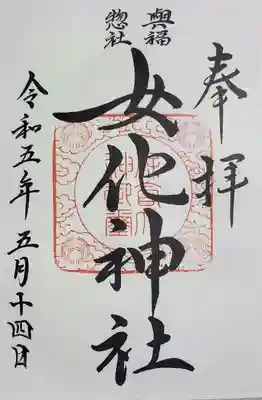 奉拝
與福
惣社
女化神社
令和五年 五月十四日